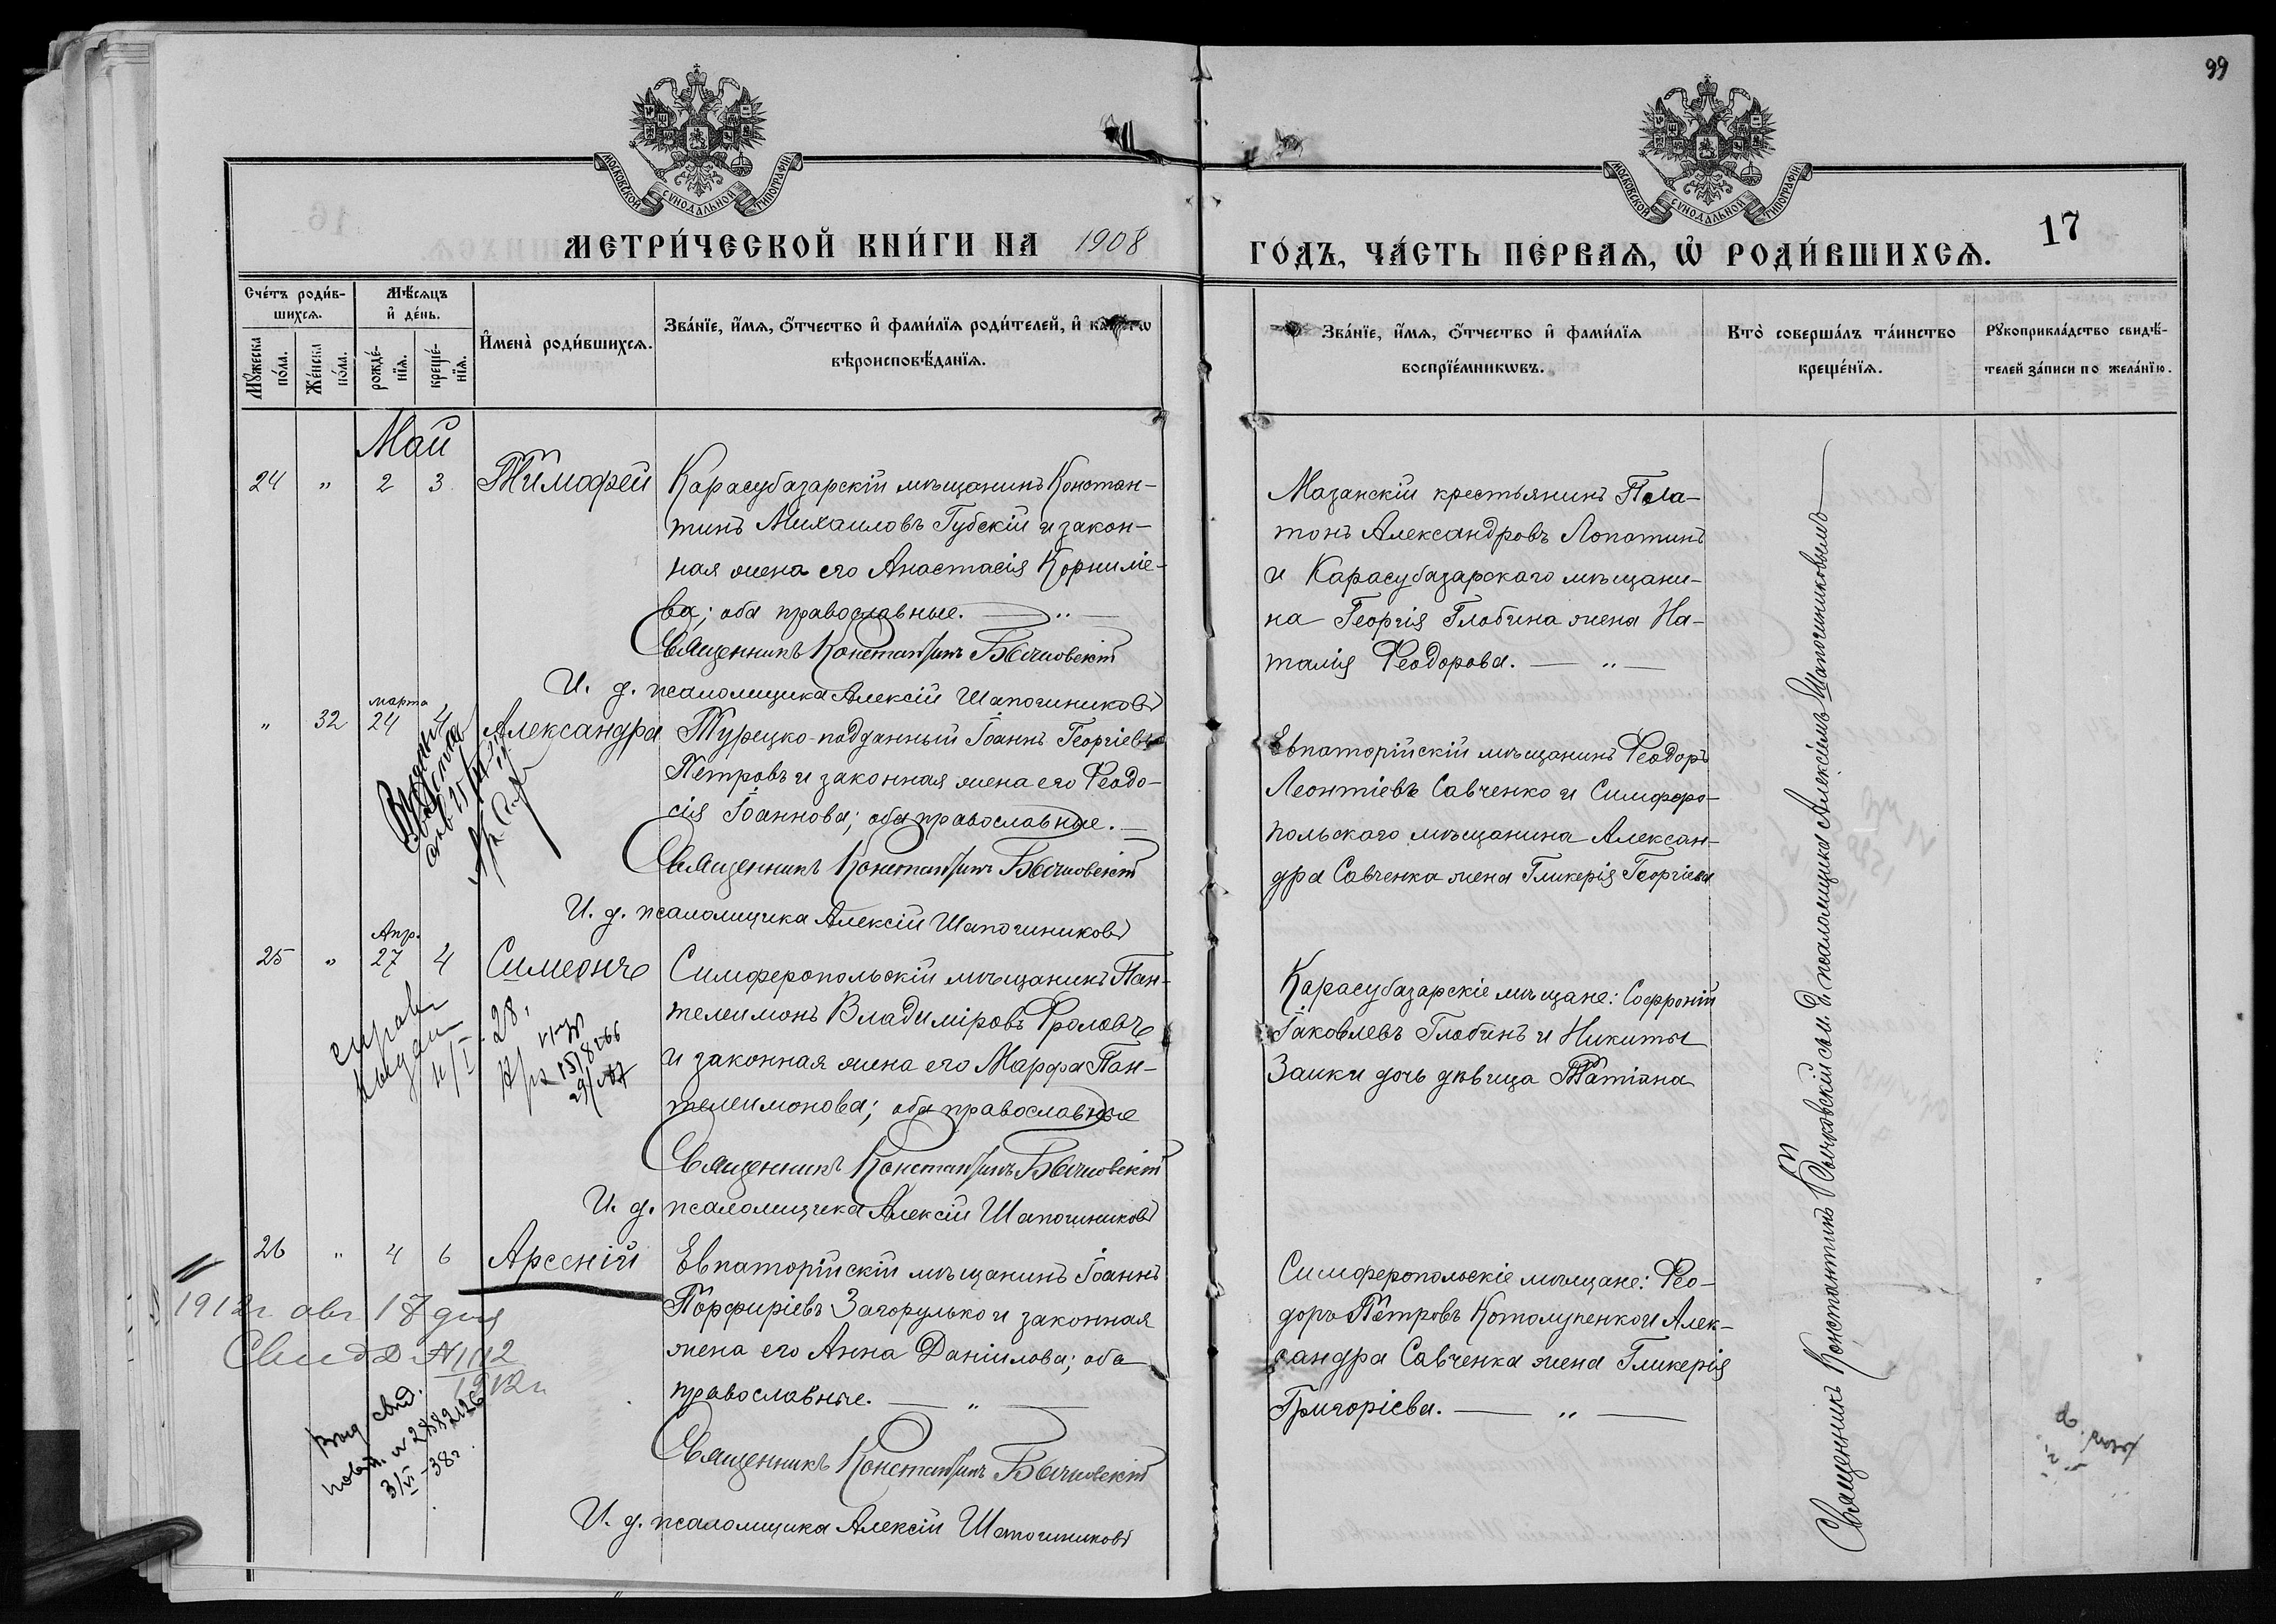 99
МОСКОВСКОЙ СѴНОДАЛЬНОЙ ТИПОГРАФІИ
МОСКОВСКОЙ СѴНОДАЛЬНОЙ ТИПОГРАФІИ
МЕТРИ́ЧЕСКОЙ КНИ́ГИ НА 1908
ГО́ДЪ, ЧА́СТЬ ПЕ́РВАѦ, Ѡ҆ РОДИ́ВШИХСѦ. 17
Сче́тъ роди́в-
шихсѧ.
Мꙋ́жеска по́ла.
Же́нска по́ла.
Мѣ́сѧцъ
и҆ де́нь.
рожде́-
нїѧ.
креще́-
нїѧ.
И҆мена̀ роди́вшихсѧ.
Зва́нїе, и҆́мѧ, ѻ҆́тчество и҆ фами́лїѧ роди́телей, и҆
вѣроисповѣ́данїѧ.
Зва́нїе, и҆́мѧ, ѻ҆́тчество и҆ фами́лїѧ
воспрїе́мникѡвъ.
Кто̀ соверша́лъ та́инство
креще́нїѧ.
Рꙋкоприкла́дство свидѣ́-
телей за́писи по жела́нїю.
Май
24 „ 2 3 Тимофей
Карасубазарскій мѣщанинъ Констан-
тинъ Михаиловъ Губскій и закон-
ная жена его Анастасія Корниліе-
ва; оба православные. — „ —
Священникъ Константинъ Бычковскій
И. д. псаломщика Алексій Шапочниковъ
Мазанскій крестьянинъ Пла-
тонъ Александровъ Лопатинъ
и Карасубазарскаго мѣщани-
на Георгія Глобина жена На-
талія Феодорова. — „ —
марта
„ 32 24 4 Александра
Турецко-подданный Іоаннъ Георгіевъ
Петровъ и законная жена его Феодо-
сія Іоаннова; оба православные. —
Священникъ Константинъ Бычковскій
И. д. псаломщика Алексій Шапочниковъ
Евпаторійскій мѣщанинъ Феодоръ
Леонтіевъ Савченко и Симферо-
польскаго мѣщанина Алексан-
дра Савченка жена Гликерія Георгіева
Апр.
25 „ 27 4 Симеонъ
Симферопольскій мѣщанинъ Пан-
телеимонъ Владиміровъ Фроловъ
и законная жена его Марфа Пан-
телеимонова; оба православные
Священникъ Константинъ Бычковскій
И. д. псаломщика Алексій Шапочниковъ
28.
Карасубазарскіе мѣщане: Софроній
Іаковлевъ Глобинъ и Никиты
Заики дочь дѣвица Татіана
26 „ 4 6 Арсеній
Евпаторійскій мѣщанинъ Іоаннъ
Порфиріевъ Загорулько и законная
жена его Анна Даніилова; оба
православные. — „ —
Священникъ Константинъ Бычковскій
И. д. псаломщика Алексій Шапочниковъ
1912г авг 17 дня
Свид
1912г
свид.
3/VI-38г
Симферопольскіе мѣщане: Фео-
доръ Петровъ Котолупенко и Алек-
сандра Савченка жена Гликерія
Григоріева. — „ —
Священникъ Константинъ Бычковскій съ и. д. псаломщика Алексіемъ Шапочниковымъ